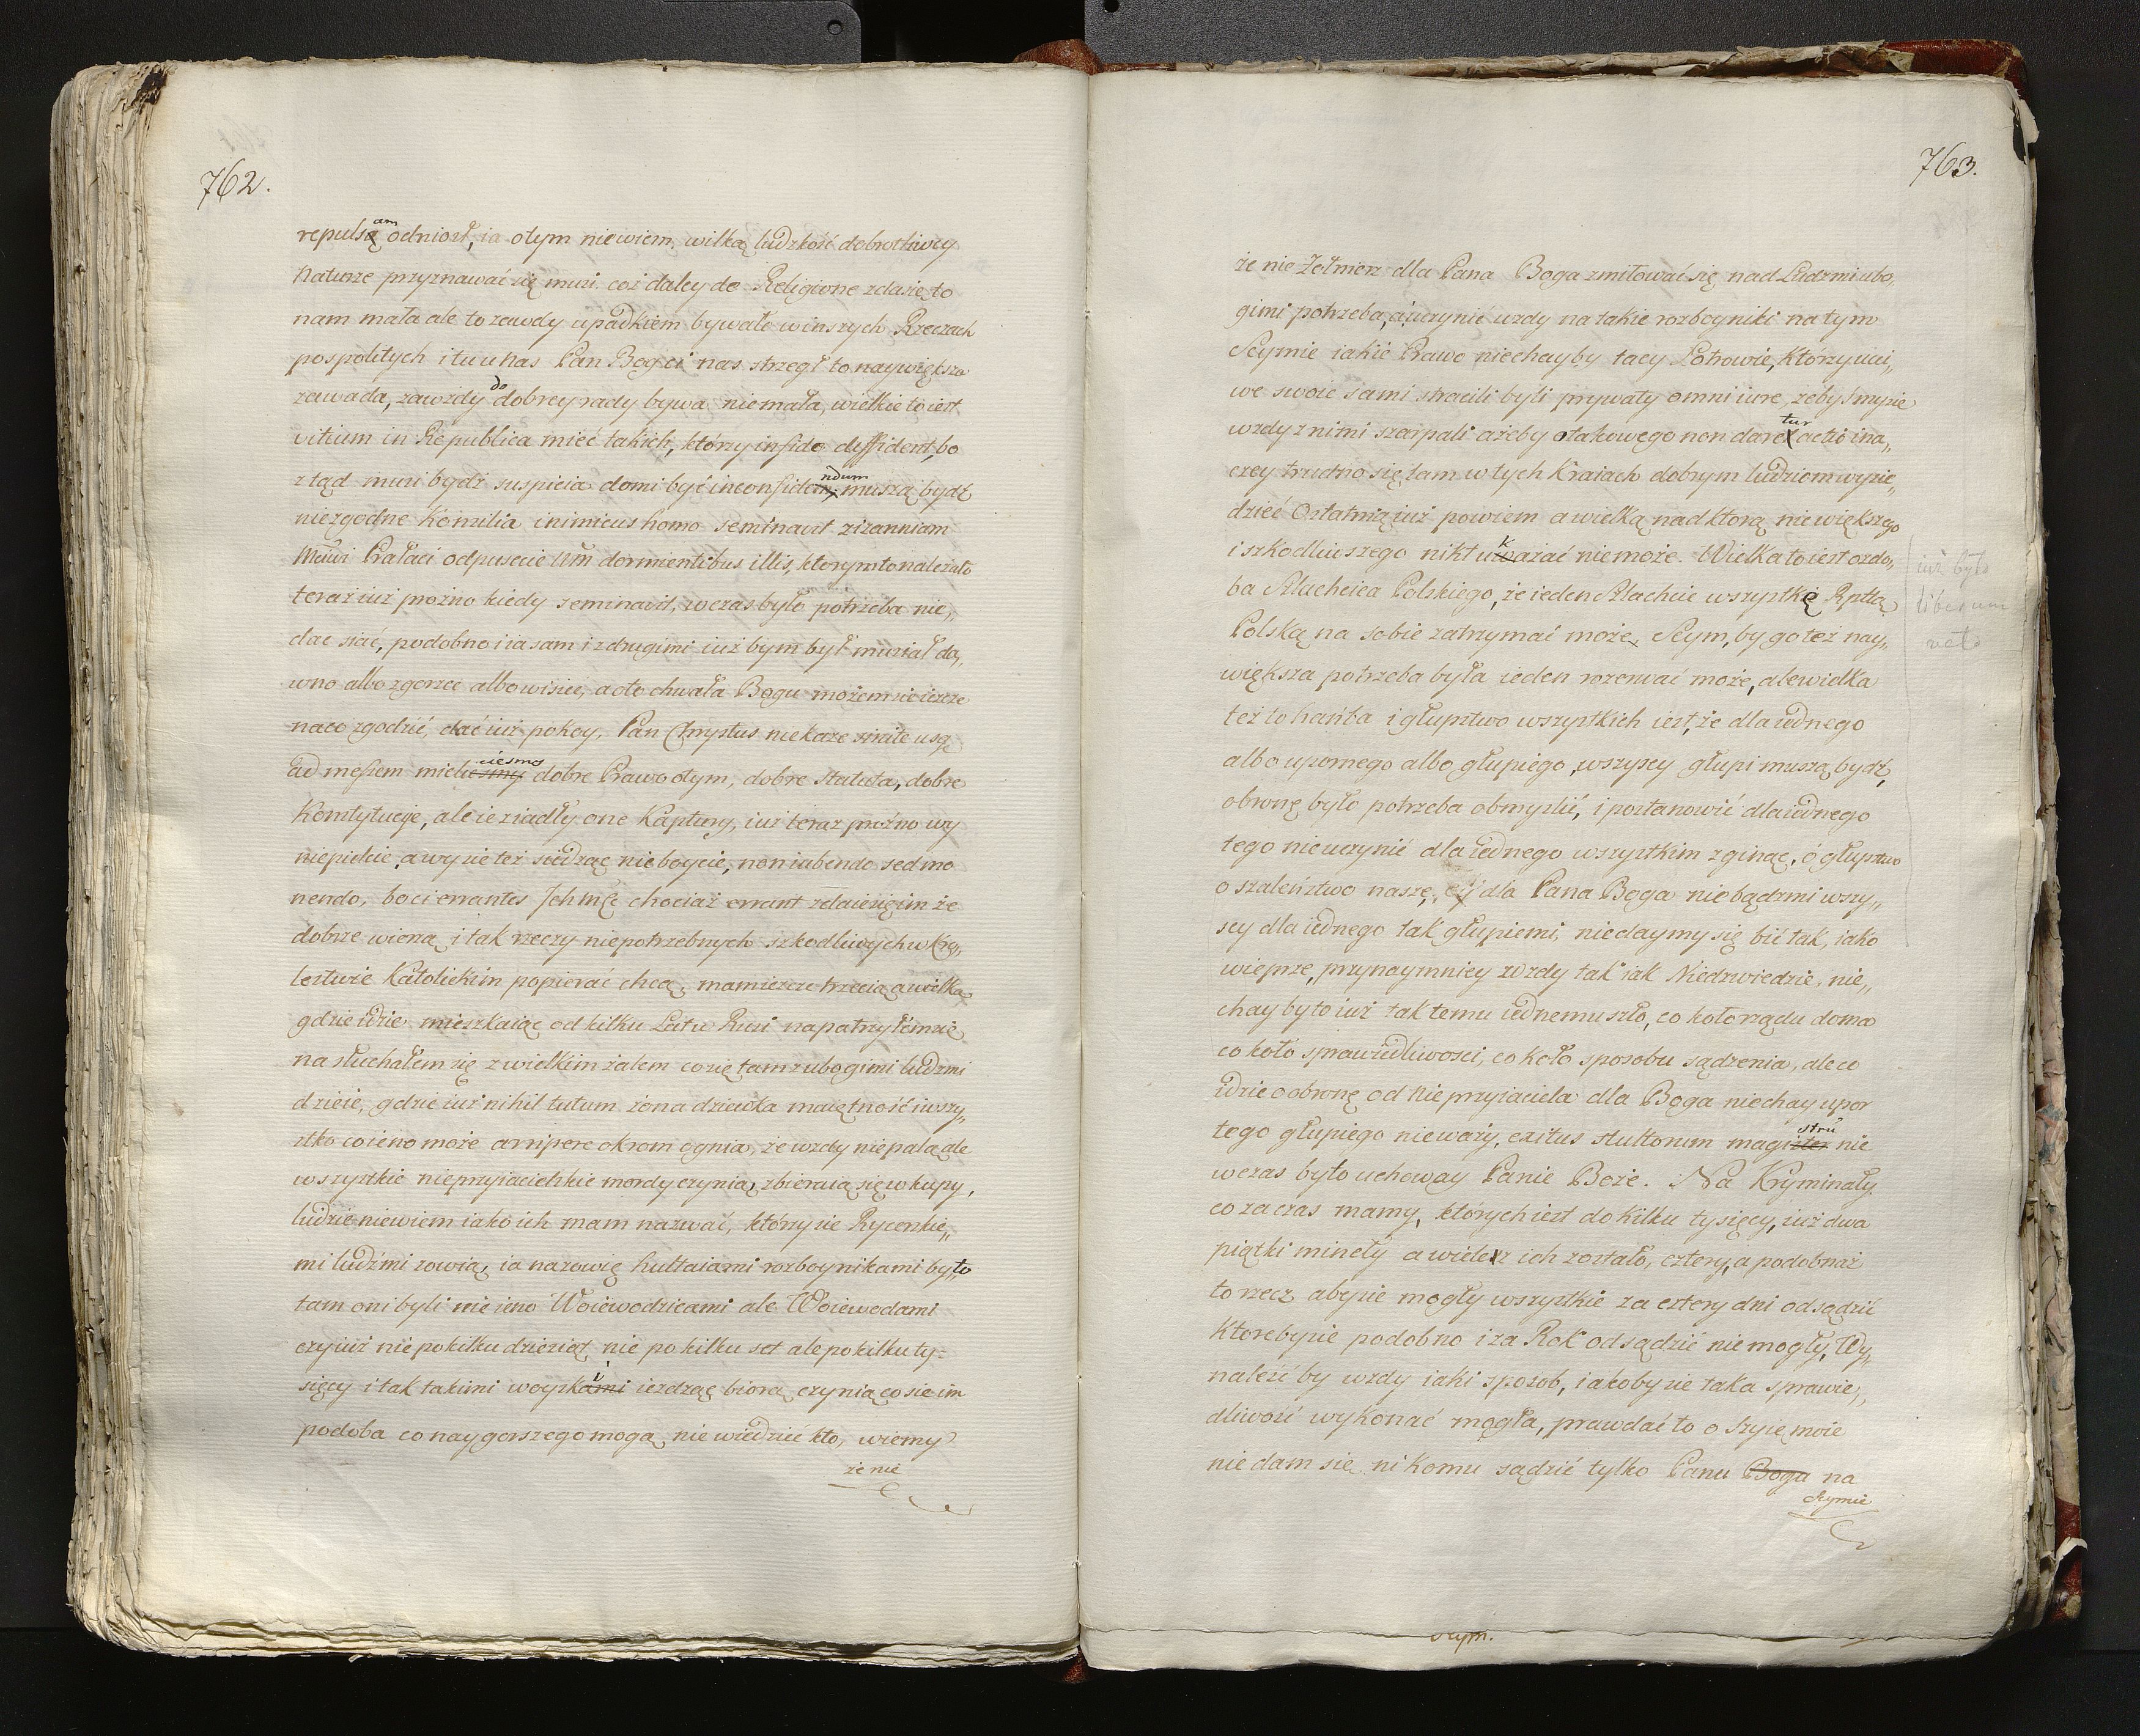 762.
repulsam odniosł, ia otym niewiem, wilką ludzkość dobrotliwey
Naturze przyznawać się musi. coż daley do Religione zda się to
nam mała ale to zawdy upadkiem bywało winszych Rzeczach
pospolitych i tu u Nas Pan Bog ci nas strzegł to naywiększa
zawada, zawżdy do dobrey rady bywa niemała, wielkie to iest
vitium in Republica mieć takich, którzy in fide diffident, bo
z tąd musi bydź suspicia domi być inconfidendum muszą bydź
niezgodne Konsilia inimicus homo seminavit zizanniam
Mówi Prałaci odpuscie Wm dormientibus illis, ktorym to należało
teraz iuż prożno kiedy seminavit, wczas było potrzeba nie„
dac siać, podobno i ia sam i z drugimi iuż bym był musiał da„
wno albo zgorzec albo wisiec, a oto chwała Bogu możem sie ieszcze
naco zgodzić, dać iuż pokoy, Pan Chrystus nie każe sinite usq
ad messem mielichmy ciesmy dobre Prawo otym, dobre statuta, dobre
Konstytucye, ale ie ziadły one Kaptury, iuż teraz prożno wy
niepieicie, a wy sie też siedząc nieboycie, non iubendo sed mo
nendo, boci errantes Ich Mcę chociaż errant zda ię się im że
dobrze wierzą i tak rzeczy niepotrzebnych szkodliwych w Kro„
lestwie Katolickim popierać chcą, mam ieszcze trzecią a wilką
gdzie idzie mieszkaiąc od kilku Lat w Rusi napatrzyłem się
na słuchałem się z wielkim żalem co się tam z ubogimi ludzmi
dzieie, gdzie iuż nihil tutum żona dziewka maiętność i wszy„
stko co ieno może arripere okrom ognia, że wzdy niepalą ale
wszystkie nieprzyiacielskie mordy czynią, zbieraią się w kupy,
ludzie niewiem iako ich mam nazwać, którzy sie Rycerskie„
mi ludźmi zowią, ia nazowię hultaiami rozboynikami by to
tam oni byli nie ieno Woiewodzicami ale Woiewodami
czyiuż nie po kilku dziesiąt nie po kilku set ale po kilku ty-
sięcy i tak takimi woyskami i iezdząc biorą czynią co sie im
podoba co naygorszego mogą, nie wiedzieć kto, wiemy
że nie
763.
że nie Żołnierz dla Pana Boga zmiłować się nad Ludzmi ubo„
gimi potrzeba, á uczynic wzdy na takie rozboyniki na tym
Seymie iakié Prawo niechayby tacy Łotrowie, ktorzy uczi„
we swoie sami stracili byli prywaty omni iure, żebysmy sie
wzdy z nimi szarpali ażeby o takowego non daretur actio ina„
czey trudno się tam w tych Kraiach dobrym ludziom wysie„
dzieć Ostatnią iuż powiem a wielką nad ktorą nie większego
i szkodliwszego nikt ukazać nie może. Wielka to iest ozdo„
ba Szlachcica Polskiego, że ieden Szlachcic wszystkę Rpltą
Polską na sobie zatrzymać może, Seym, by go też nay„
większa potrzeba była ieden rozerwać może, ale wielka
też to hańba i głupstwo wszystkich iest, że dla iednego
albo upornego albo głupiego, wszyscy głupi muszą bydź,
obronę było potrzeba obmyslić, i postanowić dla iednego
tego nieuczynić dla iednego wszystkim zginąc, ó głupstwo
o szaleństwo nasze, ey dla Pana Boga nie bądzmi wszy„
scy dla iednego tak głupiemi, niedaymy się bić tak, iako
wieprze, przynaymniey wzdy tak iak Niedzwiedzie, nie„
chay by to iuż tak temu iednemu szło, co koło rządu doma
co koło sprawiedliwosci, co koło sposobu sądzenia, ale co
idzie o obronę od Nieprzyiaciela dla Boga niechay upor
tego głupiego nie waży, exitus stultorum magister strü nie
wczas było uchoway Panie Boże. Na Kryminały
co za czas mamy, których iest do kilku tysięcy, iuż dwa
piątki mineły a wiele ż ich zostało, cztery, a podobnaż
to rzecz aby sie mogły wszystkie za cztery dni odsądzić
ktoreby sie podobno i za Rok odsądzić nie mogły, Wy„
naleźć by wzdy iaki sposob, iakoby sie taka sprawie„
dliwość wykonać mogła, prawdać to o szyię moie
nie dam sie nikomu sądzić tylko Panu Bogu na
Seymie
iuż było
liberum
veto
Seym.